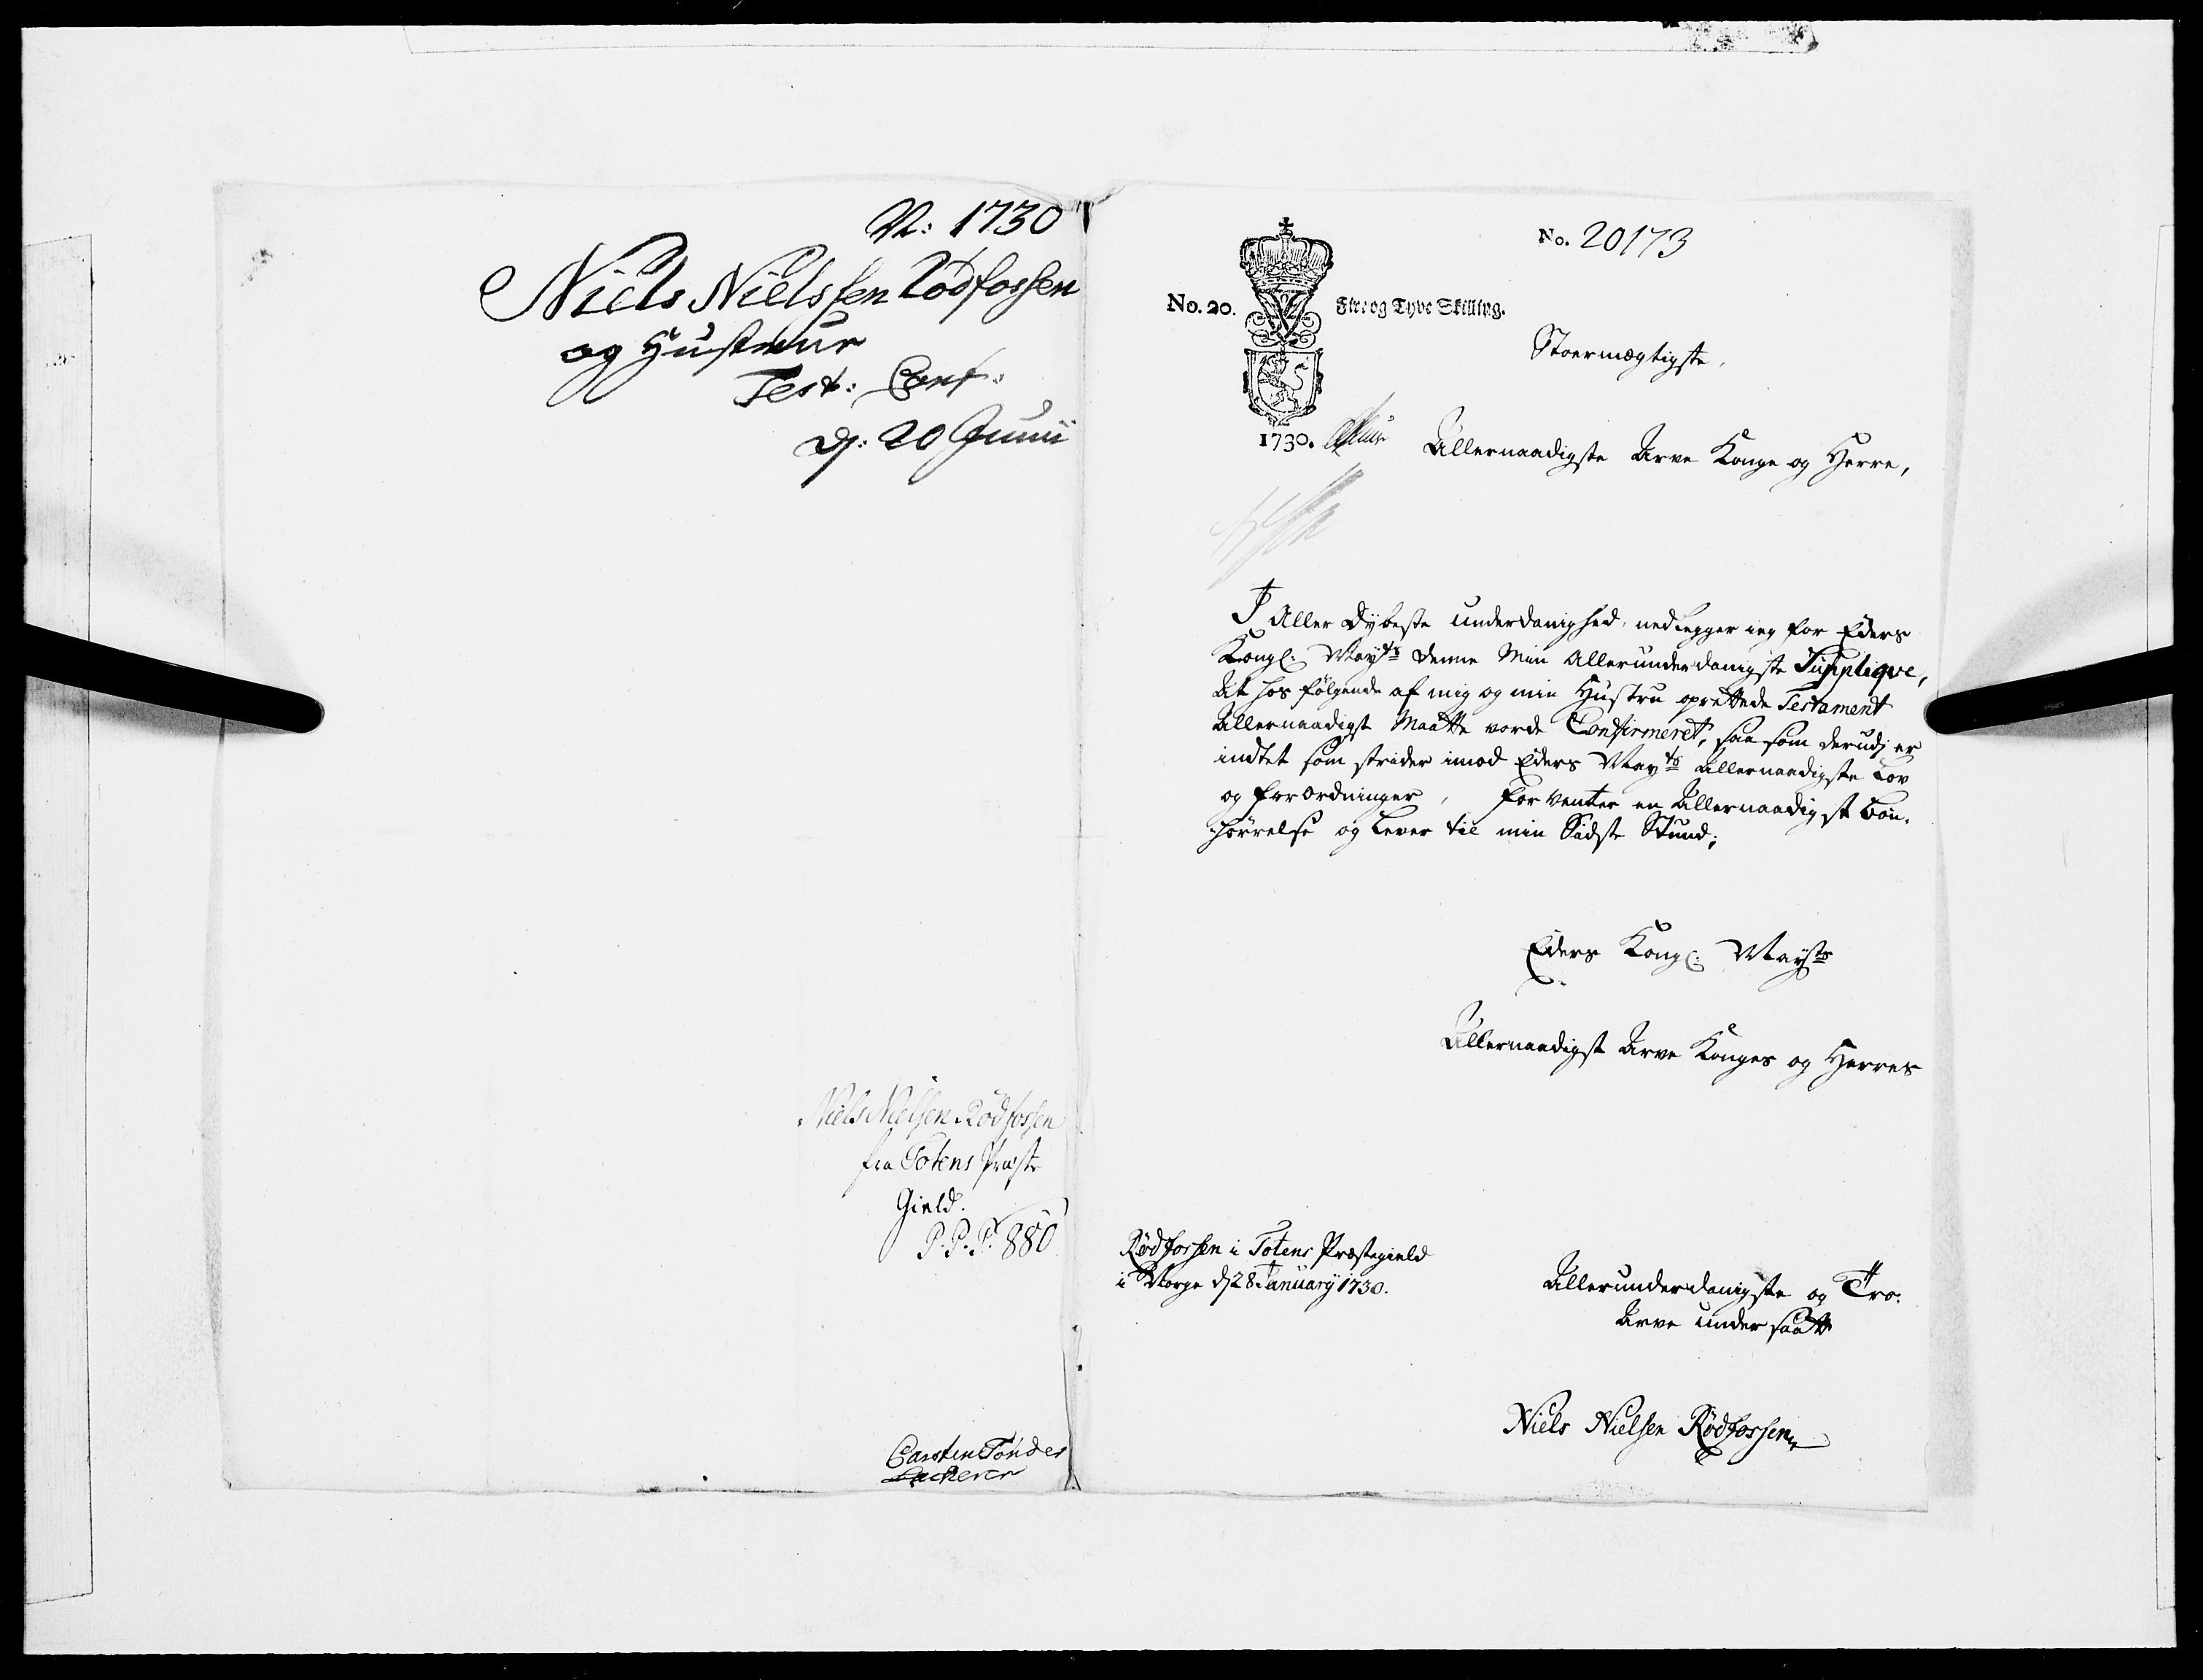 N: 1730
Niels Nielssen Rödfossen
og Hustrue
Test: Conf:
d: 20 Junii
Niels Nielsen Rødfossen
fra Totens Præste
Gield.
P.P.P. 880
Carsten Tønder
No. 20173
No. 20. Fire og Tyve Skilling.
1730.
Stoermægtigste,
Allernaadigste Arve Konge og Herre,
I Aller Dybeste underdanighed, nedlegger ieg for Eders
Kongl: Mayts denne Min Allerunderdanigste Supplique,
At hos følgende af mig og min Hustru oprettede Testament
Allernaadigst Maatte vorde Confirmeret, saa som derudj er
indtet som strider imod Eders Mayts Allernaadigste Lov
og forordninger, forventer en Allernaadigst Bøn-
hørrelse og Lever til min Sidste Stund;
Eders Kongl: Mayts
Allernaadigst Arve Konges og Herres
Rødfossen i Totens Præstegield
i Norge d 28 January 1730.
Allerunderdanigste og Tro.
Arve undersaatt
Niels Nielsen Rødfossen